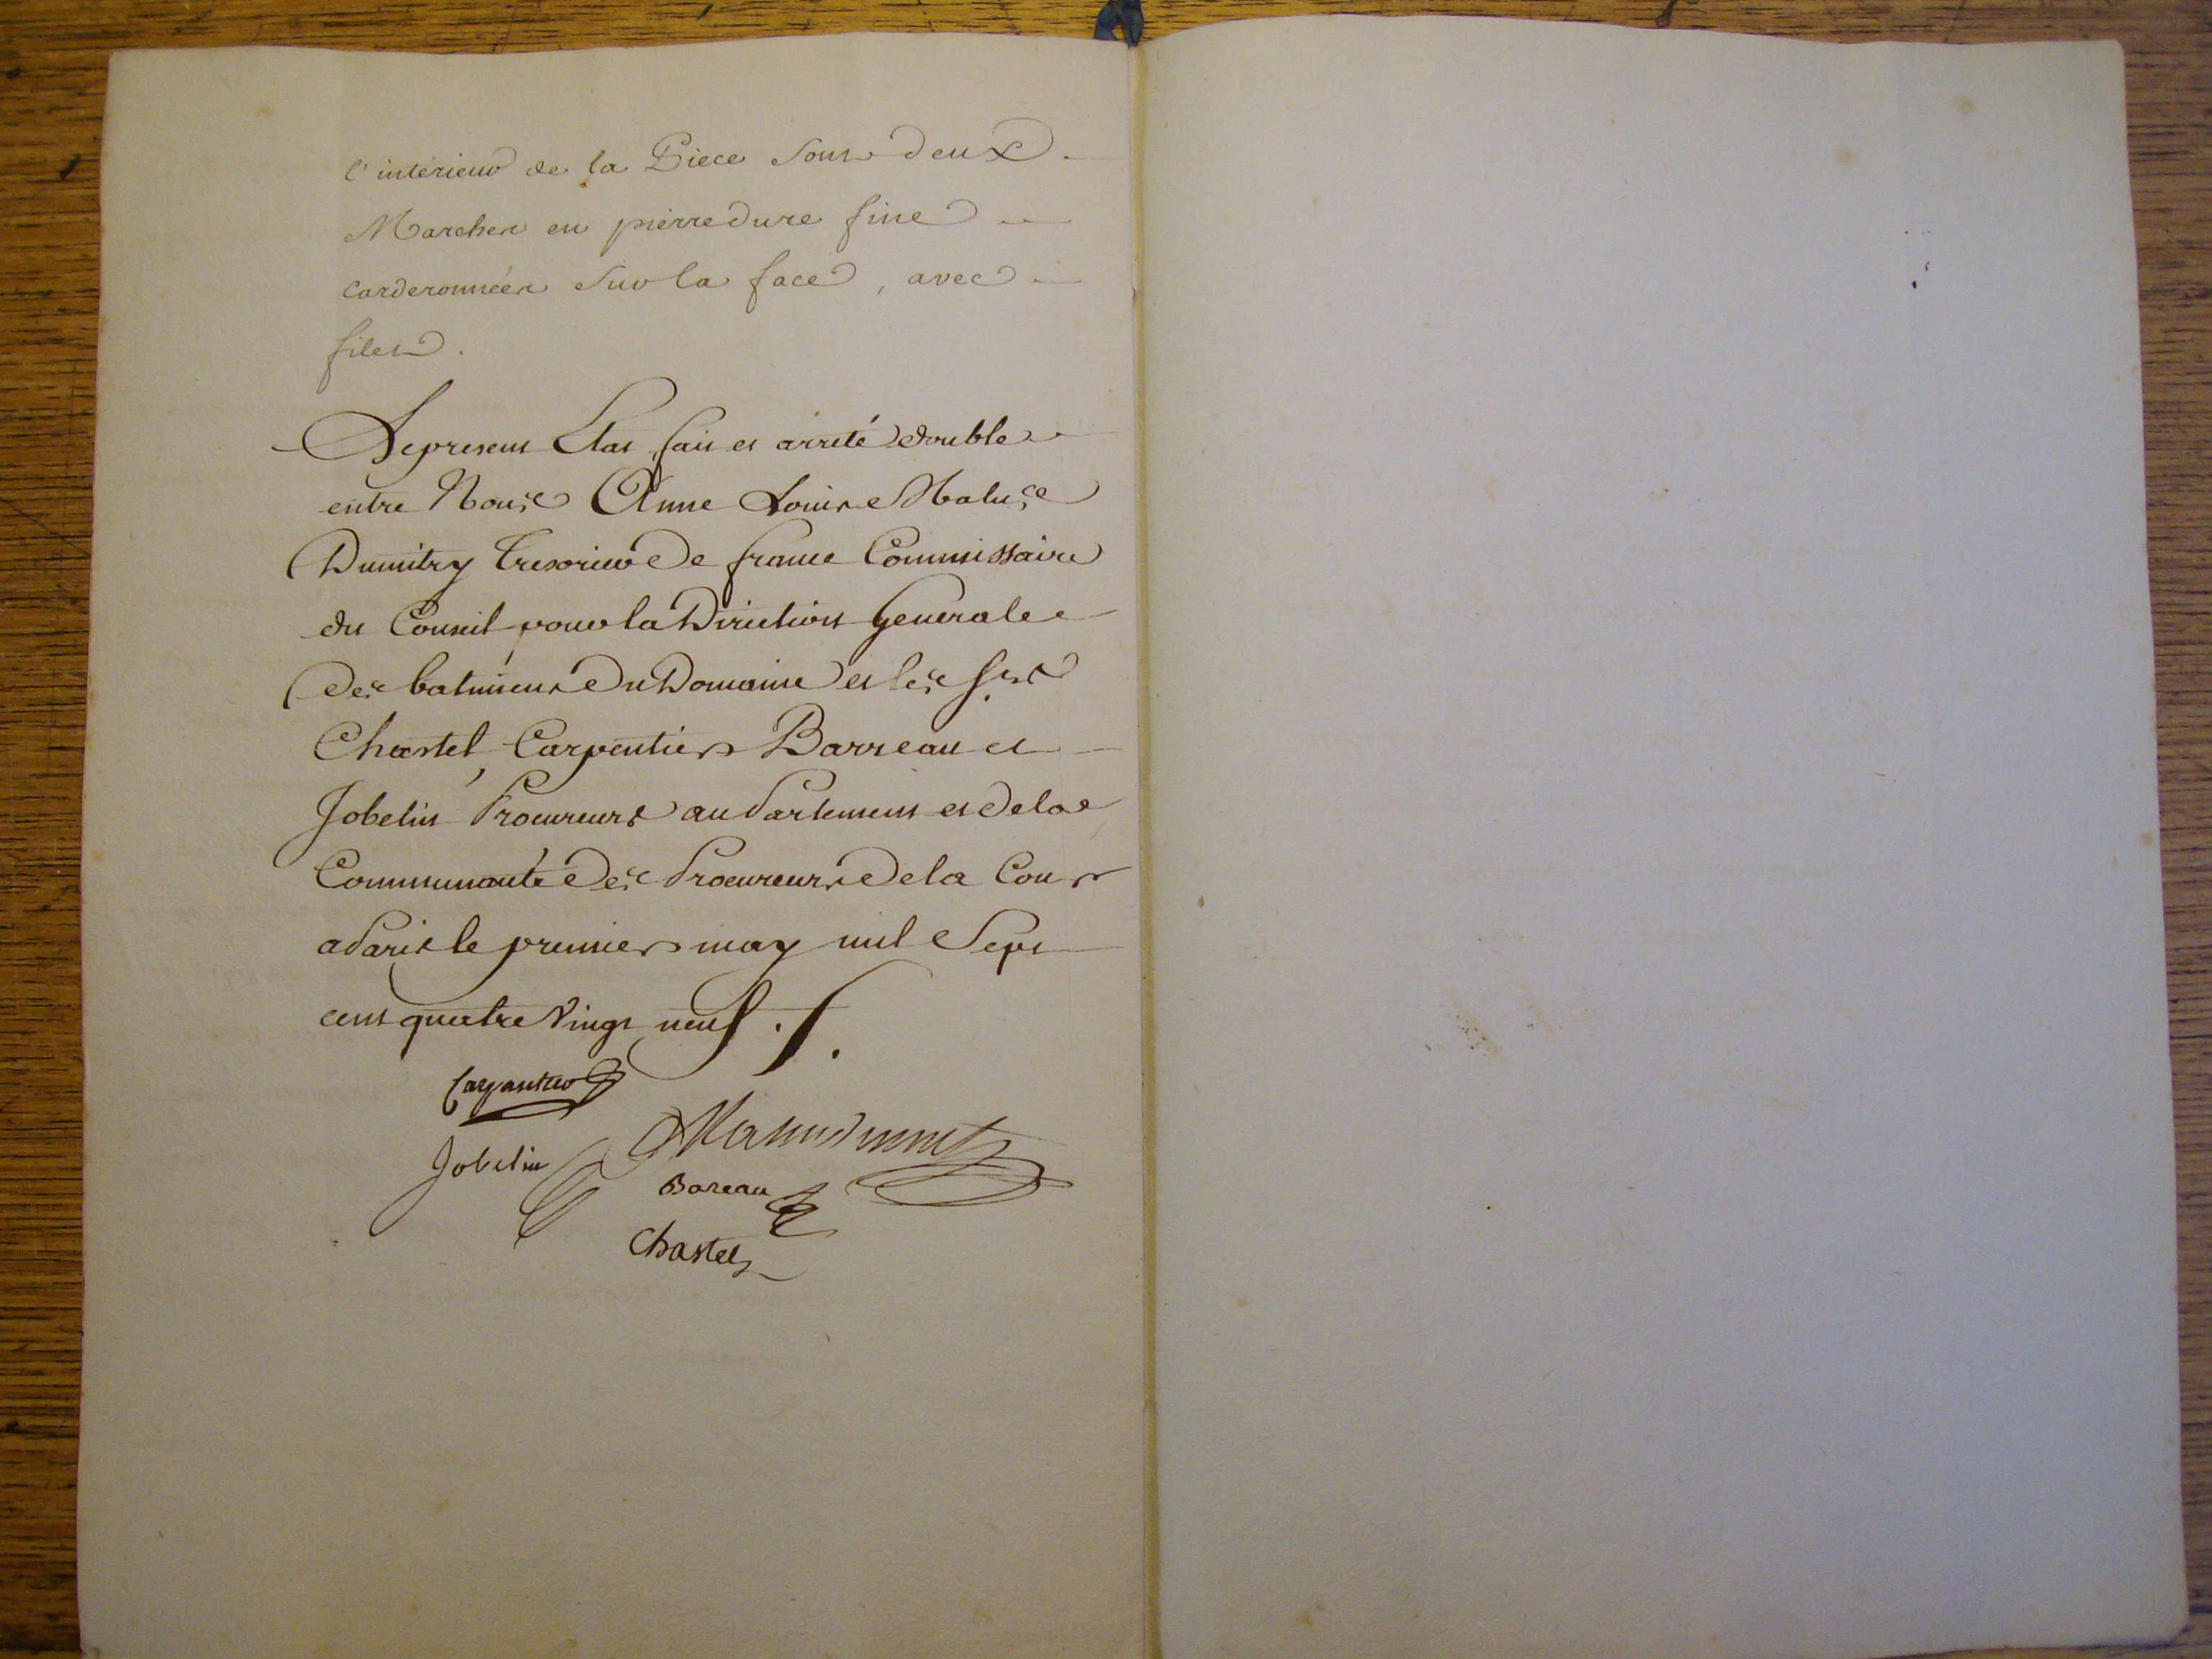 l'interieur de la Piece sont deux
Marches en pierre dure fine
carderonnées sur la face, avec
filet.
Le present Etat fait et arreté double
entre Nous Anne Louis
Dumitry Tresorier de france Commissaire
du Conseil pour la Direction generale
des batimens du Domaine et les Srs
Chastel, Carpentier Barreau et
Jobelin Procureurs au Parlement et de la
Communauté des Procureurs de la Cour
a Paris le premier may mil Sept
cent quatre Vingt neuf ./.
Carpantier
Jobelin
Bareau
Chastel